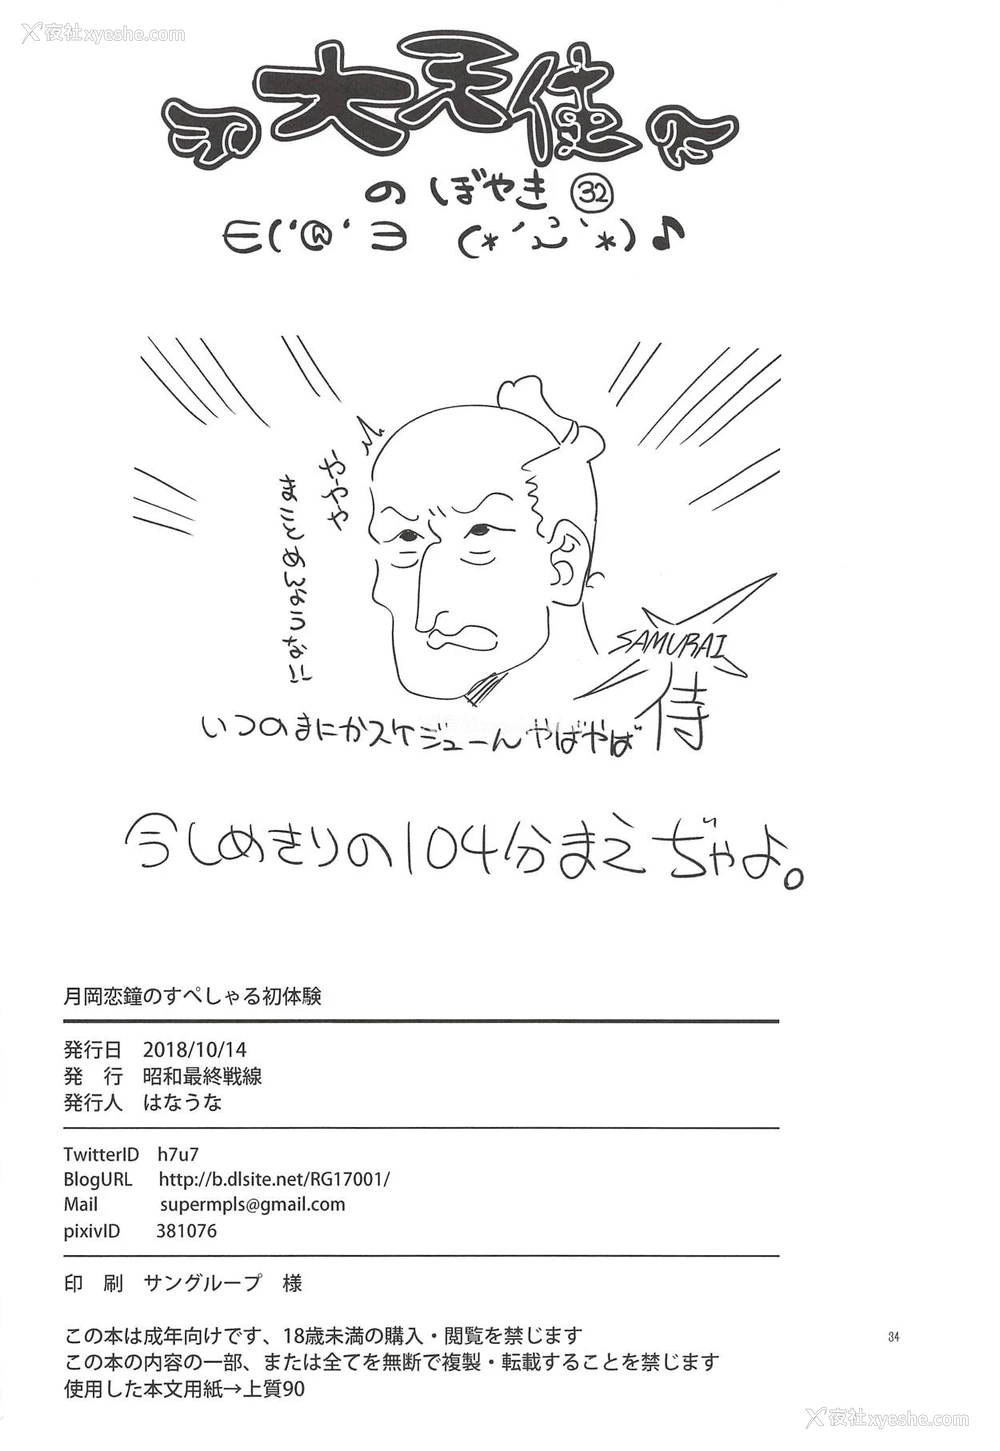 夜社xyeshe.com
大天使
のぼやき㉜
∈('@'∋ (*´ω`*)♪
ややや
まことめんような!!
SAMURAI
侍
いつのまにかスケジューんやばやば
今しめきりの104分まえぢゃよ。
月岡恋鐘のすぺしゃる初体験
発行日 2018/10/14
発 行 昭和最終戦線
発行人 はなうな
TwitterID h7u7
BlogURL http://b.dlsite.net/RG17001/
Mail supermpls@gmail.com
pixivID 381076
印 刷 サングループ 様
この本は成年向けです、18歳未満の購入・閲覧を禁じます
この本の内容の一部、または全てを無断で複製・転載することを禁じます
使用した本文用紙→上質90
34
夜社xyeshe.com